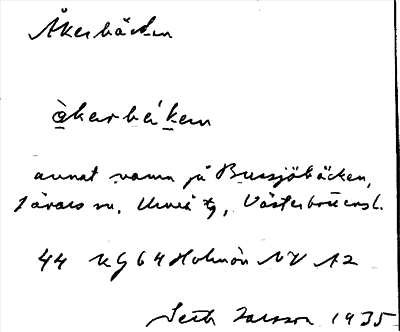 Åkerbäcken
åkerbäken
annat namn på Bussjöbäcken,
Umeå tg, Västerbottensl.
44 Kg 64 Holmön NV A2
Seth Jansson 1935